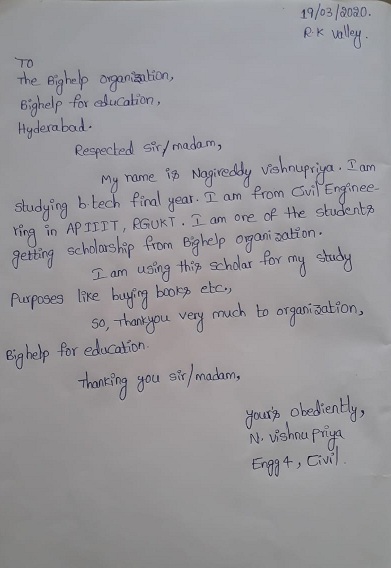 19/03/2020.
R.K valley.
To
The Bighelp organization,
Bighelp for education,
Hyderabad.
Respected sir/madam,
My name is Nagireddy vishnupriya. I am
studying b.tech final year. I am from Civil Enginee-
ring in AP IIIT, RGUKT. I am one of the students
getting scholarship from Bighelp organization.
I am using this scholar for my study
Purposes like buying books etc.,
So, Thankyou very much to organization,
Bighelp for education.
Thanking you sir/madam,
your's obediently,
N. vishnu priya
Engg 4, Civil.